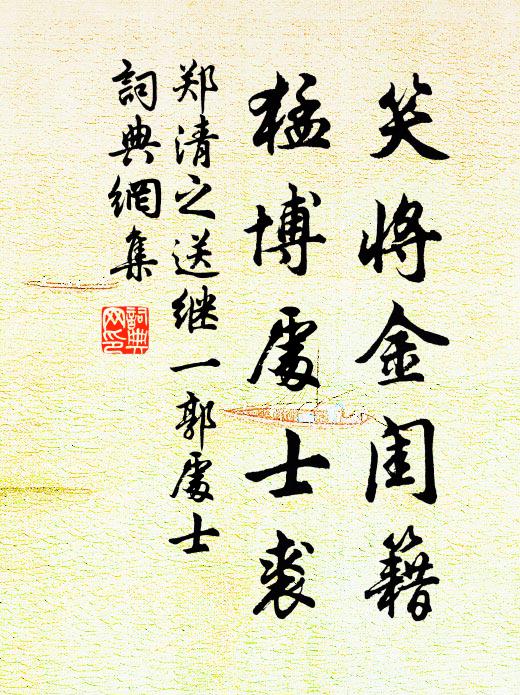 笑将金闺籍
猛博處士裘
郑清之送继一郭處士
詞典網集
詞典網印